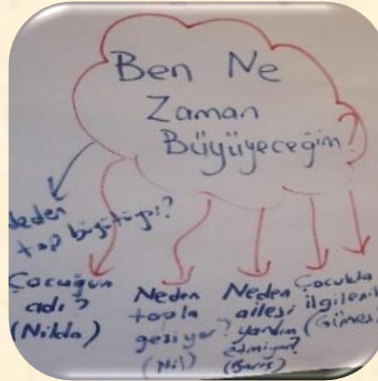 Ben Ne
Zaman
Büyüyeceğim?
Neden
top büyütüyor?
Çocuğun
adı?
(Nilda)
Neden
topla
geziyor?
(Nil)
Neden
ailesi
yardım
etmiyor?
(Barış)
Çocukla